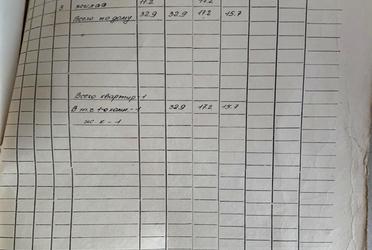 3 жилая 17.2 17.2
Всего по дому 32.9 32.9 17.2 15.7
"
Всего квартир - 1
В т.ч. 1-о комн. - 1 32.9 17.2 15.7